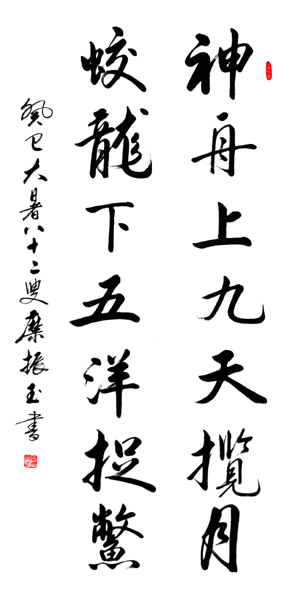 神舟上九天揽月
蛟龍下五洋捉鱉
癸巳大暑八十二叟糜振玉書